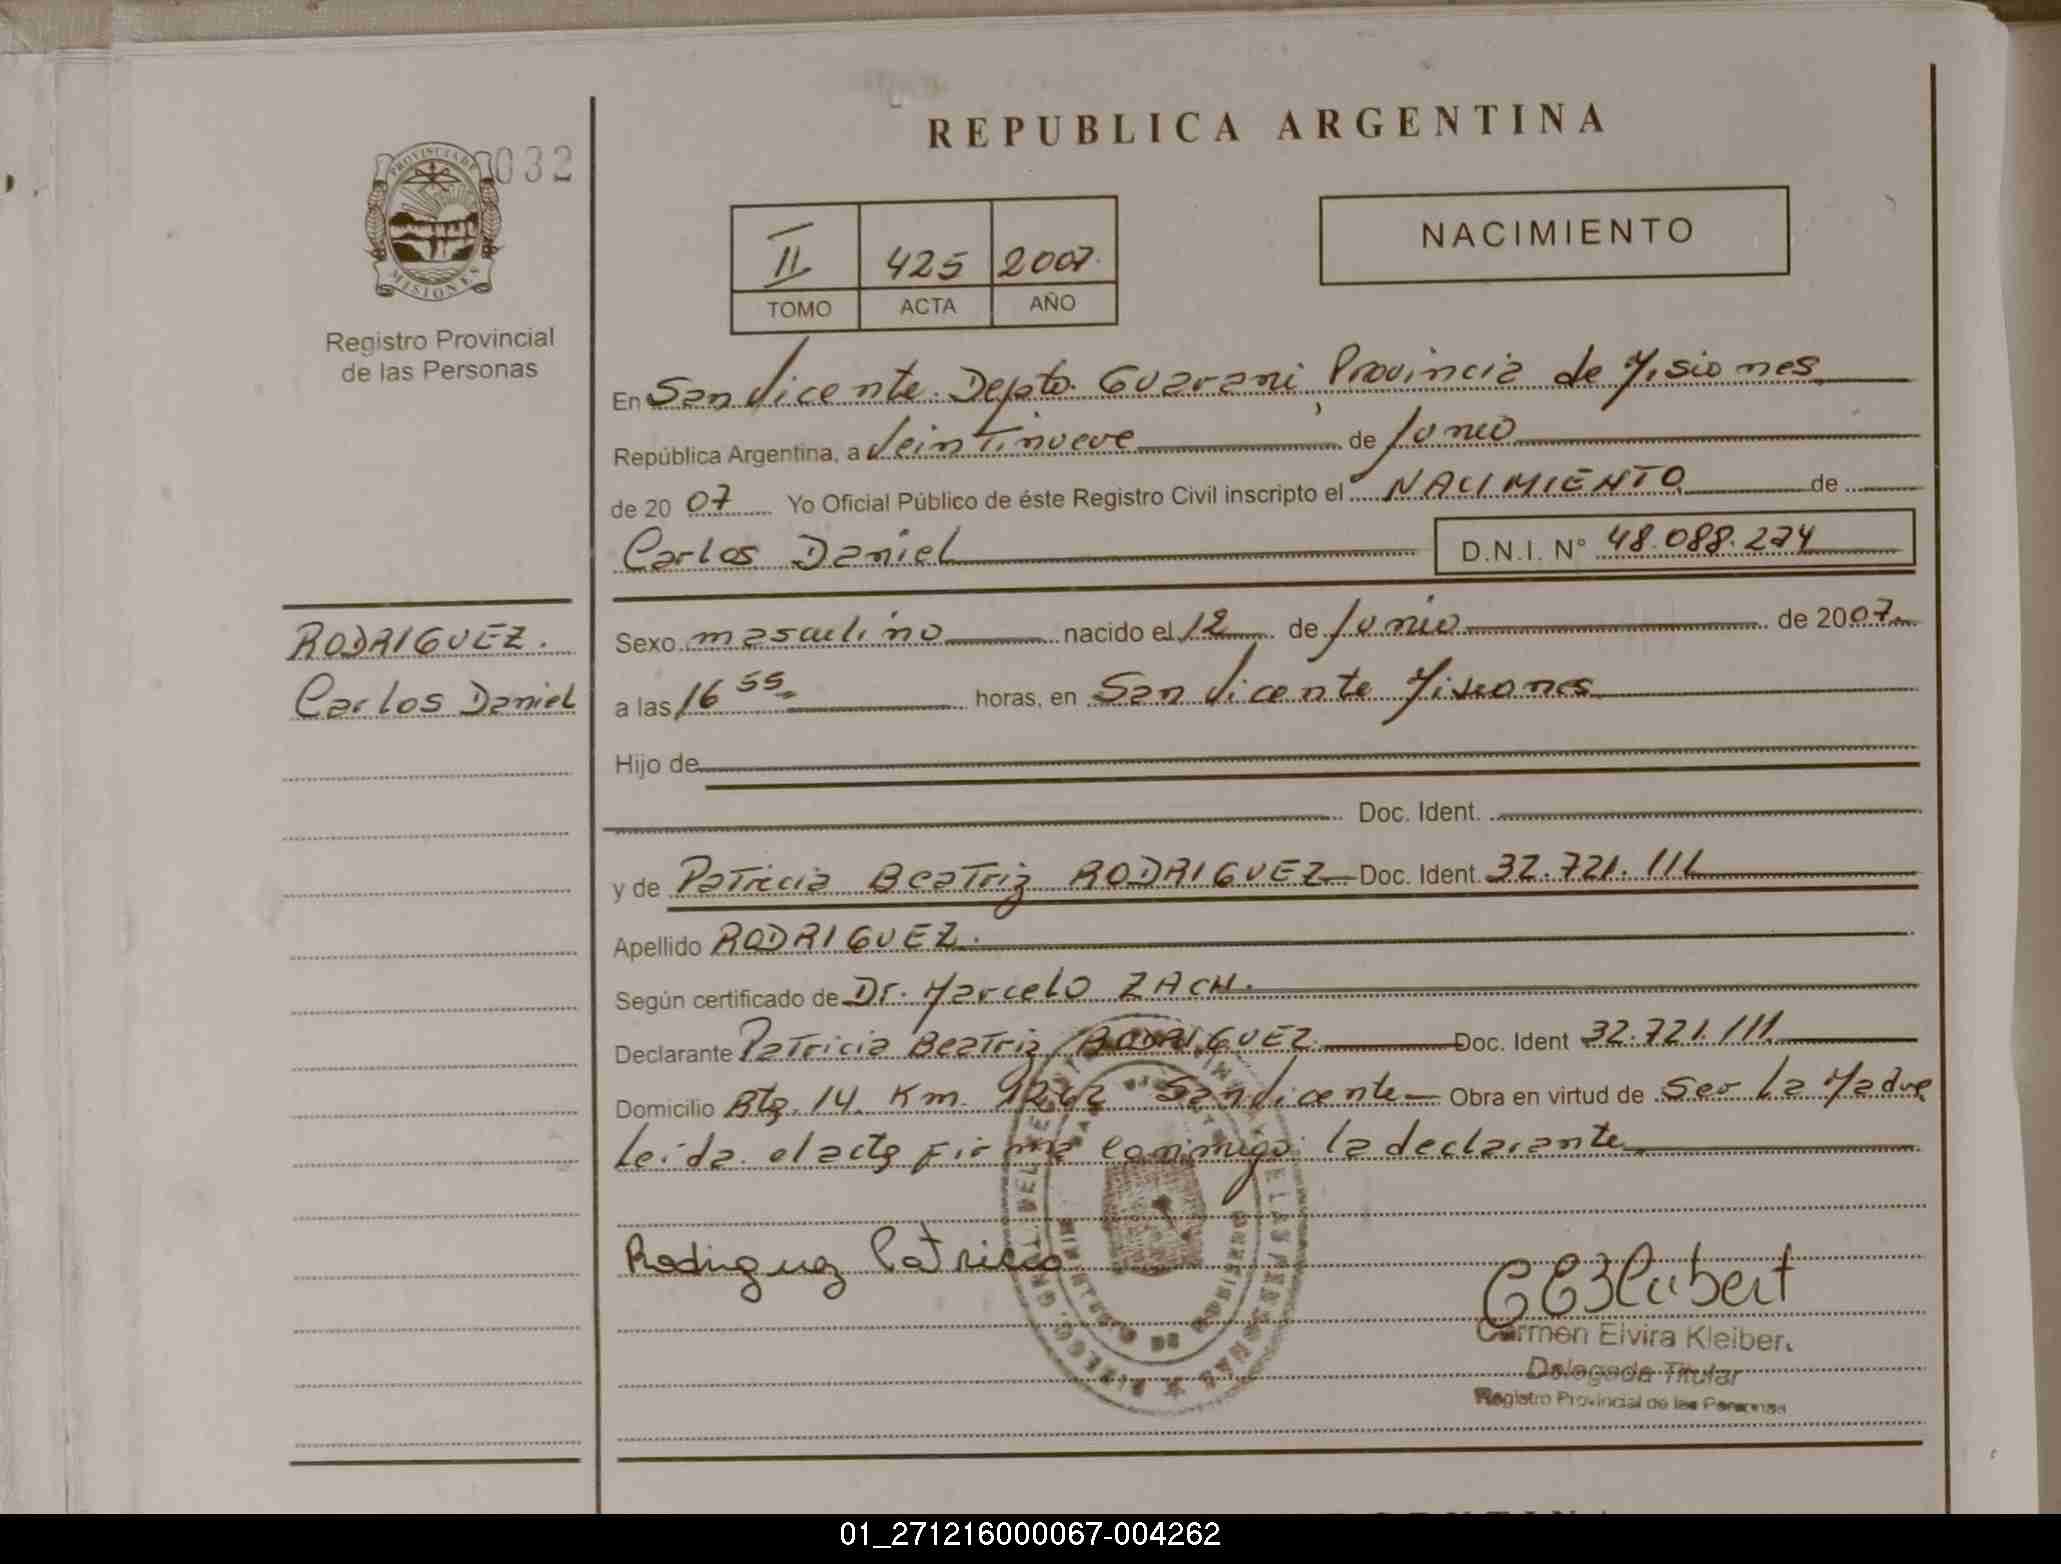 REPUBLICA ARGENTINA
PROVINCIA DE
MISIONES
032
Registro Provincial
de las Personas
II 425 2007
TOMO ACTA AÑO
NACIMIENTO
En San Vicente. Depto. Guarani, Provincia de Misiones
República Argentina, a Veintinueve de Junio
de 20 07 Yo Oficial Público de éste Registro Civil inscripto el NACIMIENTO de
Carlos Daniel D.N.I. N° 48.088.274
RODRIGUEZ.
Carlos Daniel
Sexo masculino nacido el 12 de Junio de 2007
a las 16 55 horas, en San Vicente Misiones
Hijo de
Doc. Ident.
y de Patricia Beatriz RODRIGUEZ Doc. Ident. 32.721.111
Apellido RODRIGUEZ.
Según certificado de Dr. Marcelo ZACH.
Declarante Patricia Beatriz RODRIGUEZ Doc. Ident 32.721.111
Domicilio Rta. 14 Km. San Vicente Obra en virtud de Ser La Madre
Leida el acta Firma conmigo la declarante
Rodriguez Patricia
Carmen Elvira Kleiber
Delegada Titular
Registro Provincial de las Personas
01_271216000067-004262